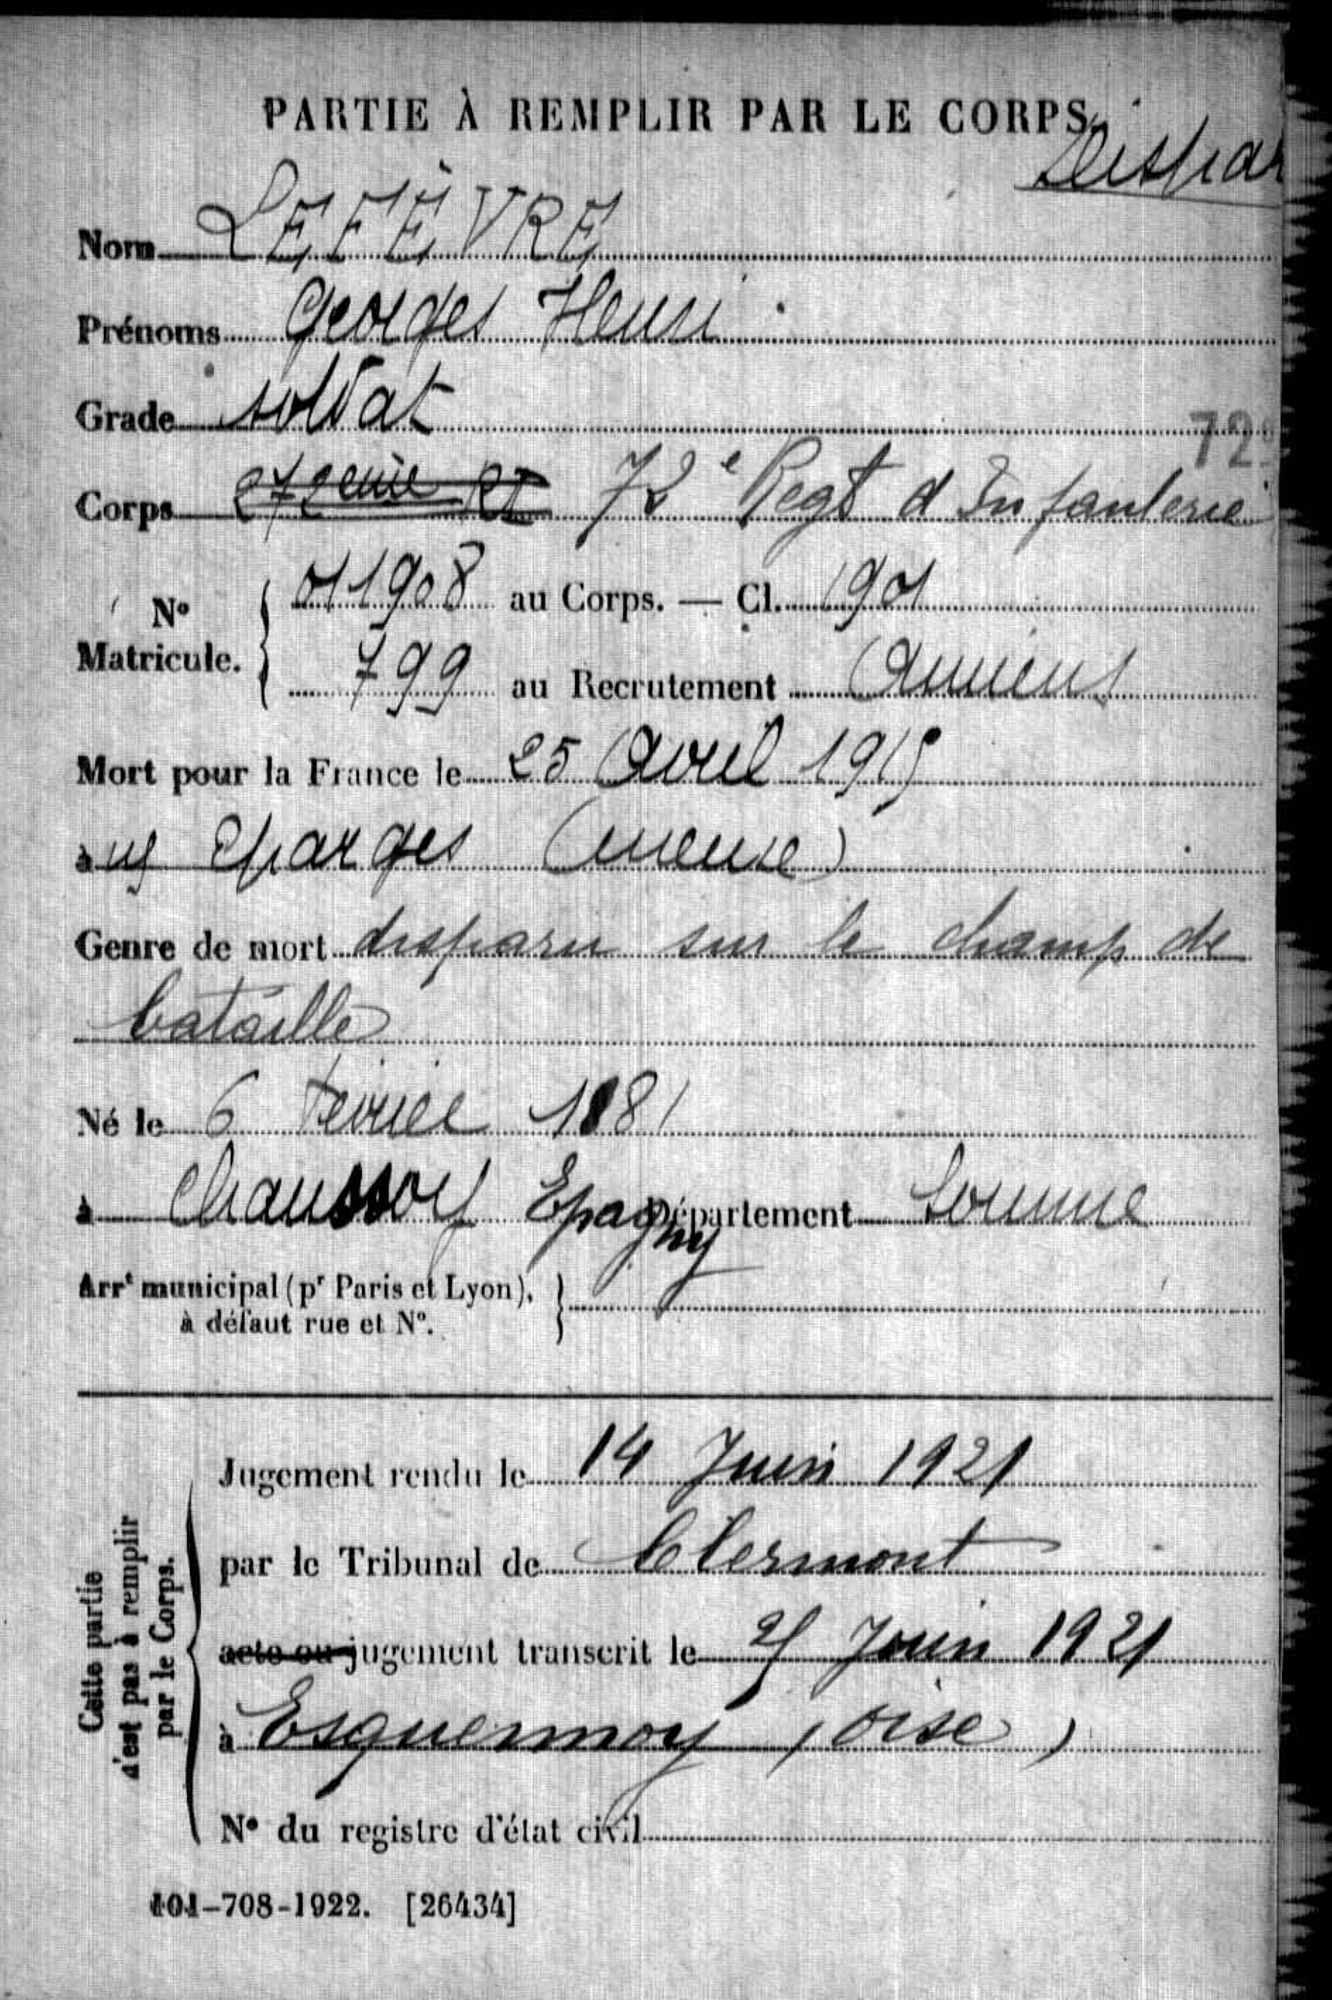 PARTIE À REMPLIR PAR LE CORPS.
Dispar
Nom LEFÈVRE
Prénoms Georges Henri
Grade soldat
72
Corps 272eme RI 72e Regt d'Infanterie
No Matricule. 011908 au Corps. — Cl. 1901
799 au Recrutement Amiens
Mort pour la France le 25 Avril 1915
à Eparges (meuse)
Genre de mort disparu sur le champ de
bataille
Né le 6 Février 1881
à Chaussoy Epagny Département Somme
Arrt municipal (pr Paris et Lyon),
à défaut rue et No.
Cette partie
n'est pas à remplir
par le Corps.
Jugement rendu le 14 Juin 1921
par le Tribunal de Clermont
acte ou jugement transcrit le Juin 1921
à Esquennoy (oise)
No du registre d'état civil
101-708-1922. [26434]